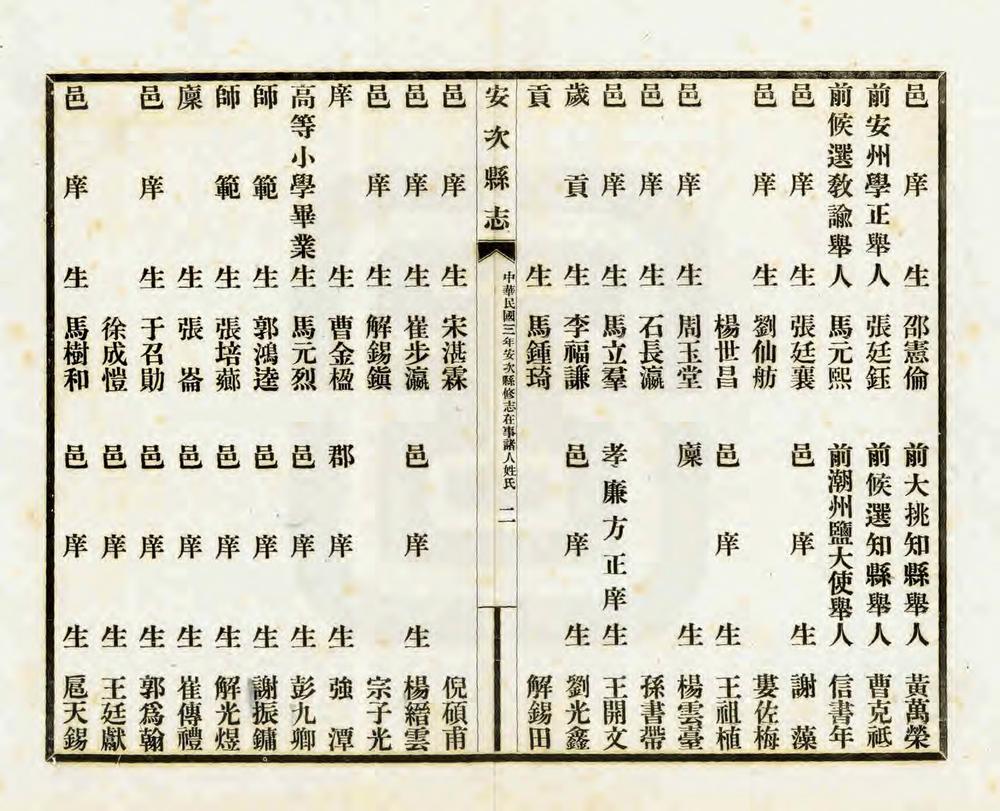 邑庠生 邵憲倫 前大挑知縣舉人 黃萬榮
前安州學正舉人 張廷鈺 前候選知縣舉人 曹克祗
前候選教諭舉人 馬元熙 前潮州鹽大使舉人 信書年
邑庠生 張廷襄 邑庠生 謝藻
邑庠生 劉仙舫 婁佐梅
楊世昌 邑庠生 王祖植
邑庠生 周玉堂 廩生 楊雲臺
邑庠生 石長瀛 孫書帶
邑庠生 馬立羣 孝廉方正庠生 王開文
歲貢生 李福謙 邑庠生 劉光鑫
貢生 馬鍾琦 解錫田
安次縣志 中華民國三年安次縣修志在事諸人姓氏 二
邑庠生 宋湛霖 倪碩甫
邑庠生 崔步瀛 邑庠生 楊縉雲
邑庠生 解錫鎭 宗子光
庠生 曹金楹 郡庠生 強潭
高等小學畢業生 馬元烈 邑庠生 彭九卿
師範生 郭鴻逵 邑庠生 謝振鏞
師範生 張培薌 邑庠生 解光煜
廩生 張崙 邑庠生 崔傳禮
邑庠生 于召勛 邑庠生 郭爲翰
徐成愷 邑庠生 王廷獻
邑庠生 馬樹和 邑庠生 扈天錫